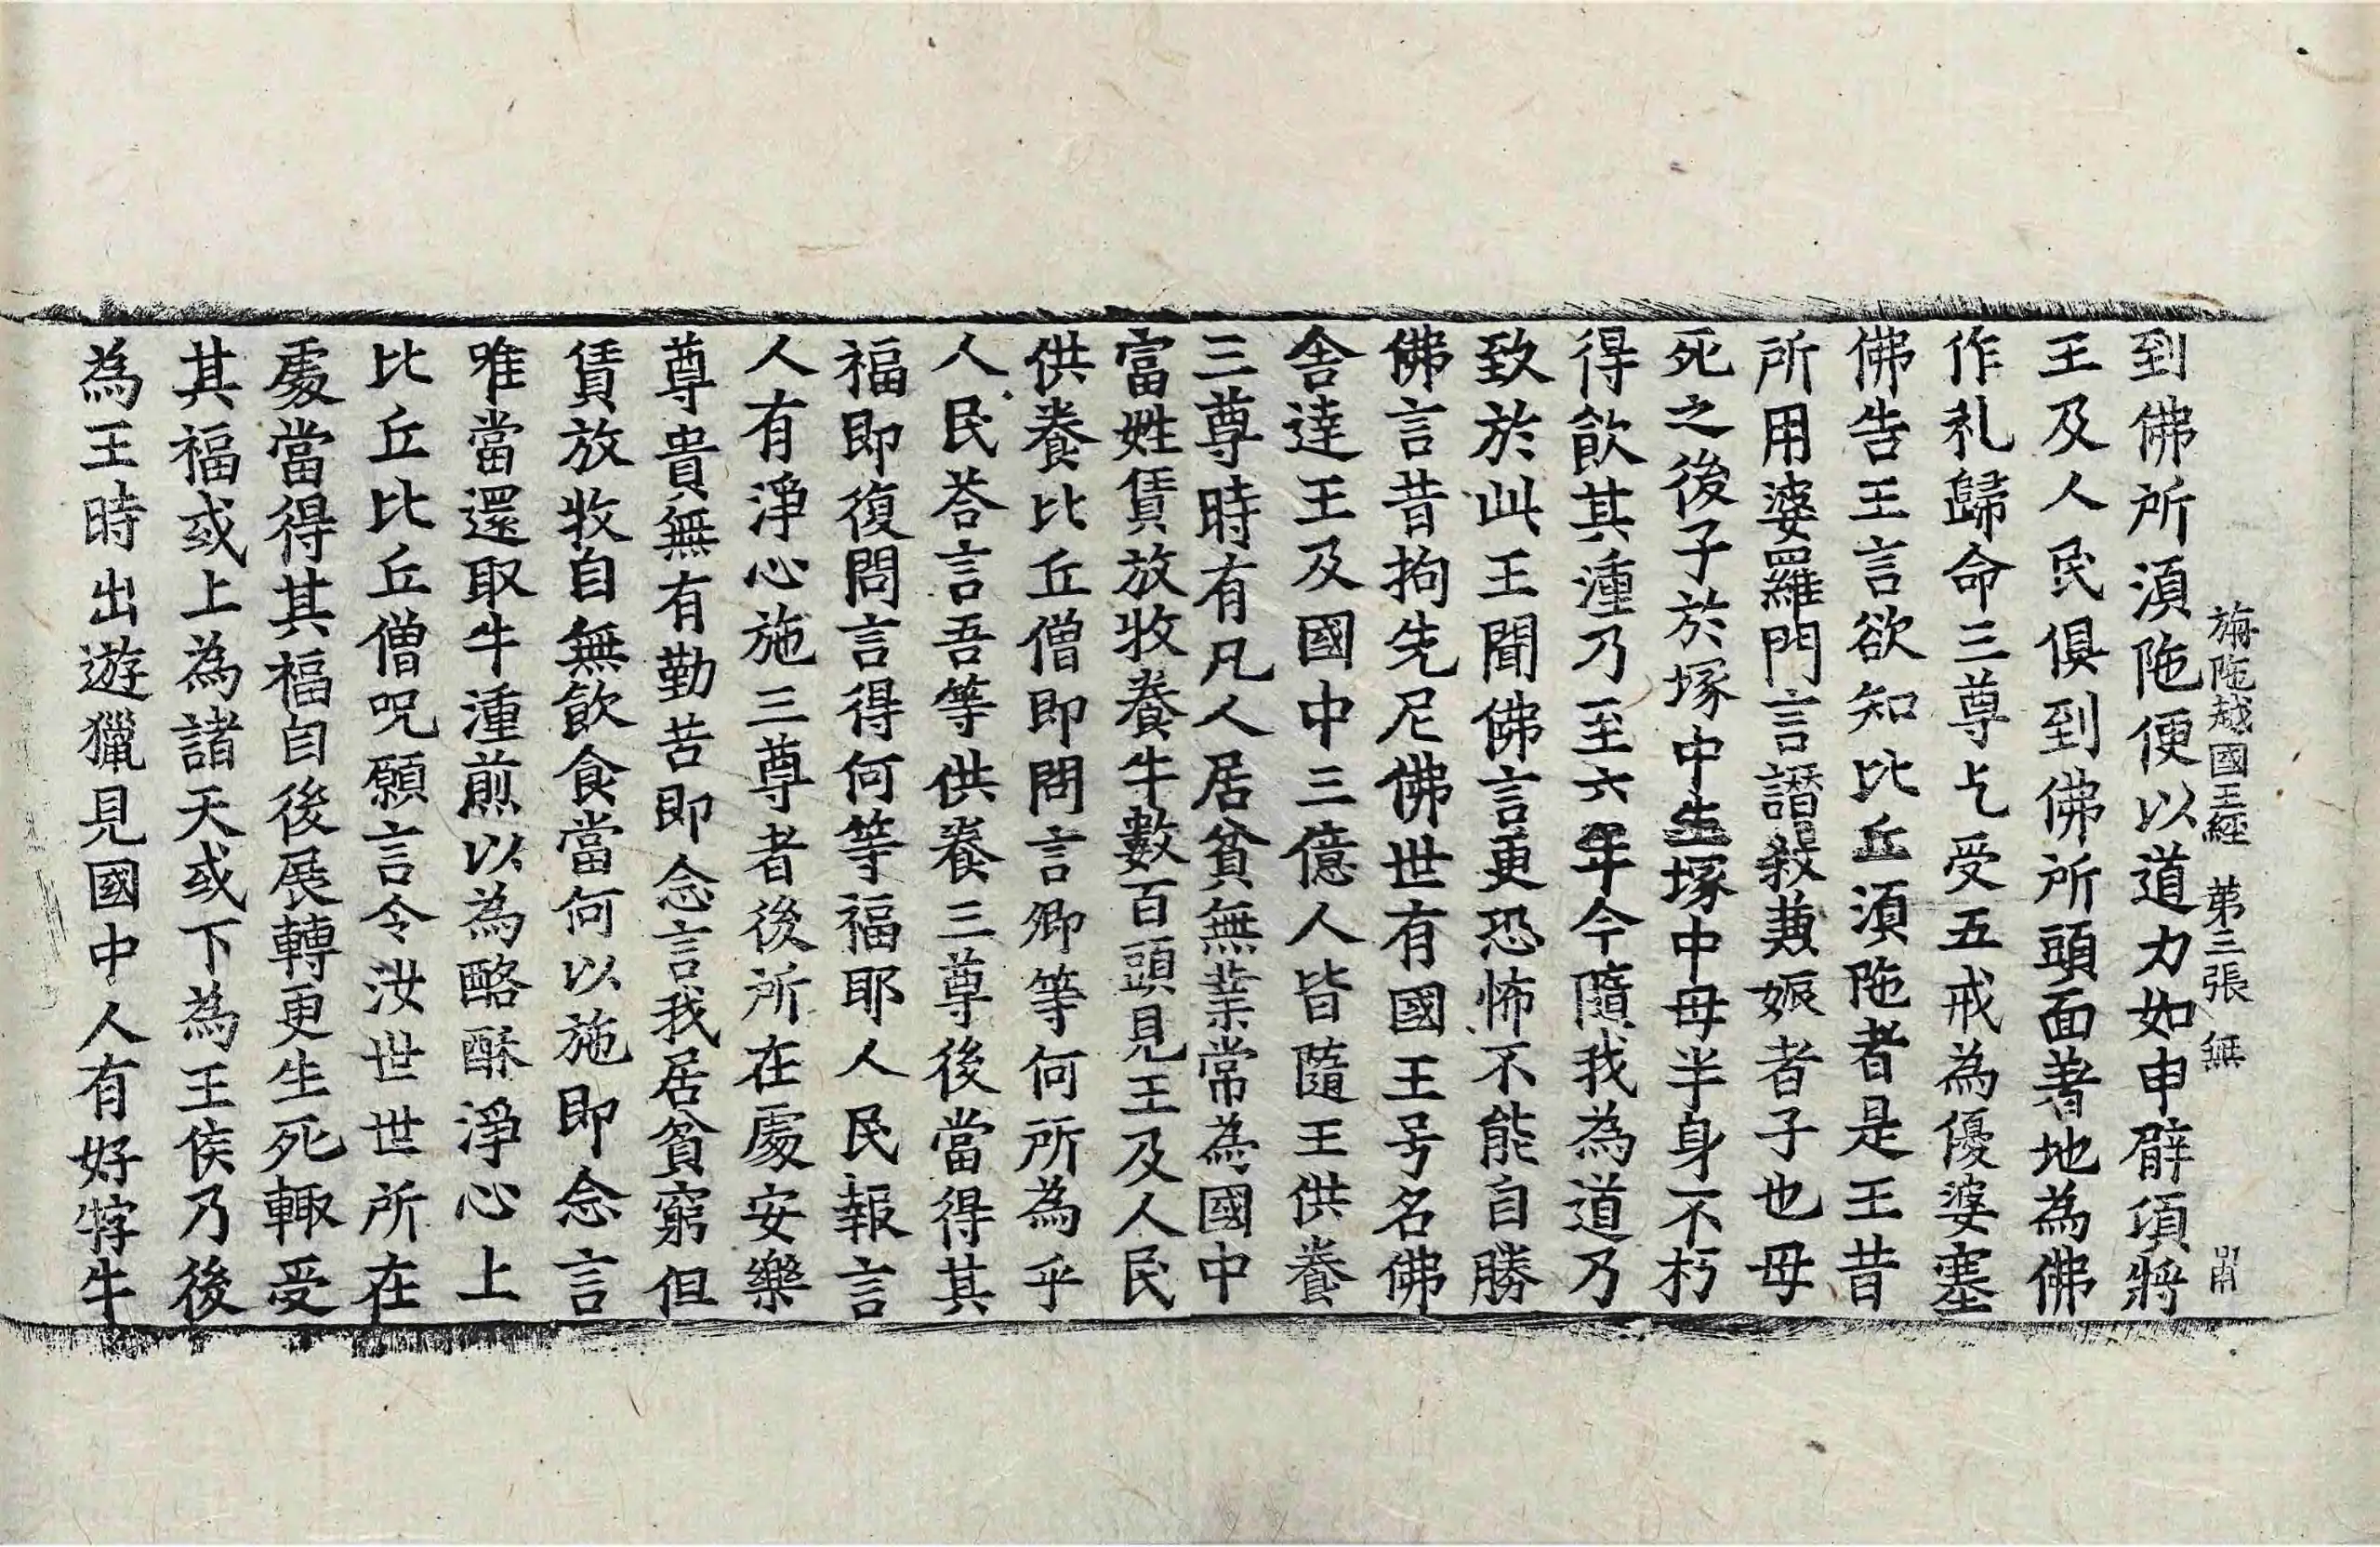 旃陁越國王經 第三張 無
到佛所湏陁便以道力如申臂頃將
王及人民俱到佛所頭面著地為佛
作礼歸命三尊乞受五戒為優婆塞
佛告王言欲知比丘湏陁者是王昔
所用婆羅門言譖殺兼娠者子也母
死之後子於塚中生塚中母半身不朽
得飲其湩乃至六年今隨我為道乃
致於此王聞佛言更恐怖不能自勝
佛言昔拘先尼佛世有國王号名佛
舍達王及國中三億人皆隨王供養
三尊時有凡人居貧無業常為國中
富姓賃放牧養牛數百頭見王及人民
供養比丘僧即問言卿等何所為乎
人民荅言吾等供養三尊後當得其
福即復問言得何等福耶人民報言
人有淨心施三尊者後所在處安樂
尊貴無有勤苦即念言我居貧窮但
賃放牧自無飲食當何以施即念言
唯當還取牛湩煎以為酪酥淨心上
比丘比丘僧呪願言令汝世世所在
處當得其福自後展轉更生死輙受
其福或上為諸天或下為王侯乃後
為王時出遊獵見國中人有好牸牛